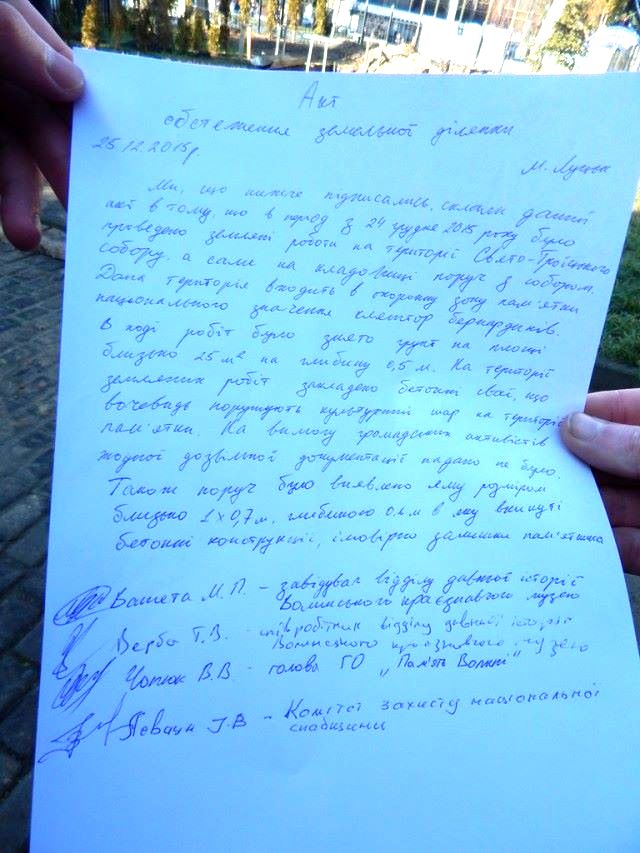 Акт
обстеження земельної ділянки
25.12.2015р.
м. Луцьк
Ми, що нижче підписались, склали даний
акт в тому, що в період з 24 грудня 2015 року було
проведено земляні роботи на території Свято-Троїцького
собору, а саме на кладовищі поруч з собором.
Дана територія входить в охоронну зону пам'ятки
національного значення кляштор бернардинів.
В ході робіт було знято грунт на площі
близько 25 м² на глибину 0,5 м. На території
земляних робіт закладено бетонні сваї, що
вочевидь порушують культурний шар на території
пам'ятки. На вимогу громадських активістів
жодної дозвільної документації надано не було.
Також поруч було виявлено яму розміром
близько 1 х 0,7 м, глибиною м в яку вкинуті
бетонні конструкції, імовірно залишки пам'ятника
Вашета М.П. - завідувач відділу давньої історії
Волинського краєзнавчого музею
Верба Т.В. - співробітник відділу давньої історії
Волинського краєзнавчого музею
Чопюк В.В - голова ГО „Пам'ять Волині"
І.В - Комітет захисту національної
спадщини